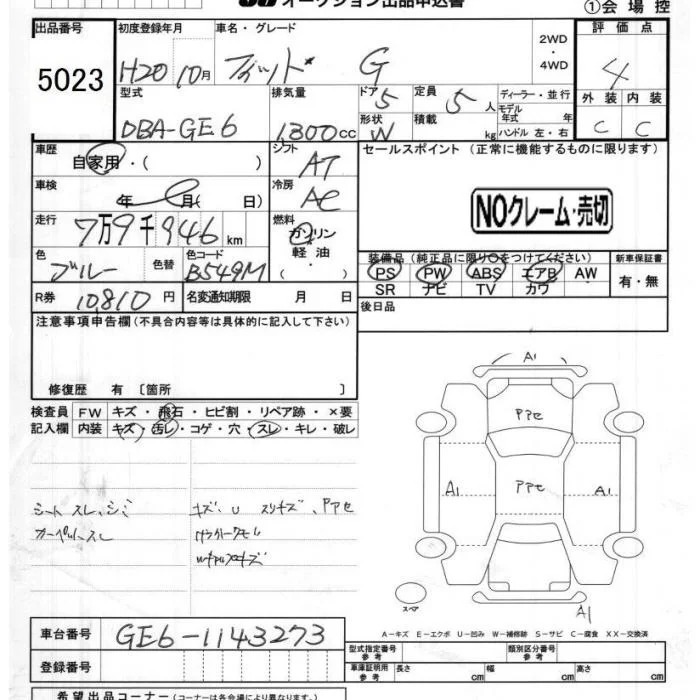 オークション出品申込書
①会場控
出品番号 5023
初度登録年月 H20 10月
車名・グレード フィット G
2WD・4WD
評価点 4
外装 C 内装 C
型式 DBA-GE6
排気量 1,300cc
ドア 5 形状 W
定員 5人 積載 kg
ディーラー・並行
モデル年式 年式
ハンドル 左・右
車歴 自家用・( )
シフト AT
セールスポイント (正常に機能するものに限ります)
車検 年 月( 日)
冷房 AC
NOクレーム・売切
走行 7万9千946km
燃料 ガソリン 軽油・
色 ブルー 色替
色コード B549M
装備品(純正品に限り○をつけてください)
PS PW ABS エアB AW
SR ナビ TV カワ
新車保証書 有・無
R券 10,810円
名変通知期限 月 日
後日品
注意事項申告欄(不具合内容等は具体的に記入して下さい)
修復歴 有 〔箇所 〕
検査員記入欄
FW キズ・飛石・ヒビ割・リペア跡・×要
内装 キズ・汚レ・コゲ・穴・スレ・キレ・破レ
シートスレ、シミ
カーペットスレ
キズ・U スリキズ、PアセA1
Pアセ
Pアセ
A1
A1
A1
スペア
A-キズ E-エクボ U-凹み W-補修跡 S-サビ C-腐食 XX-交換済
車台番号 GE6-1143273
登録番号
型式指定番号 参考
類別区分番号 参考
車庫証明用 参考 長さ cm 幅 cm 高さ cm
希望出品コーナー(コーナーは各会場により異なります)